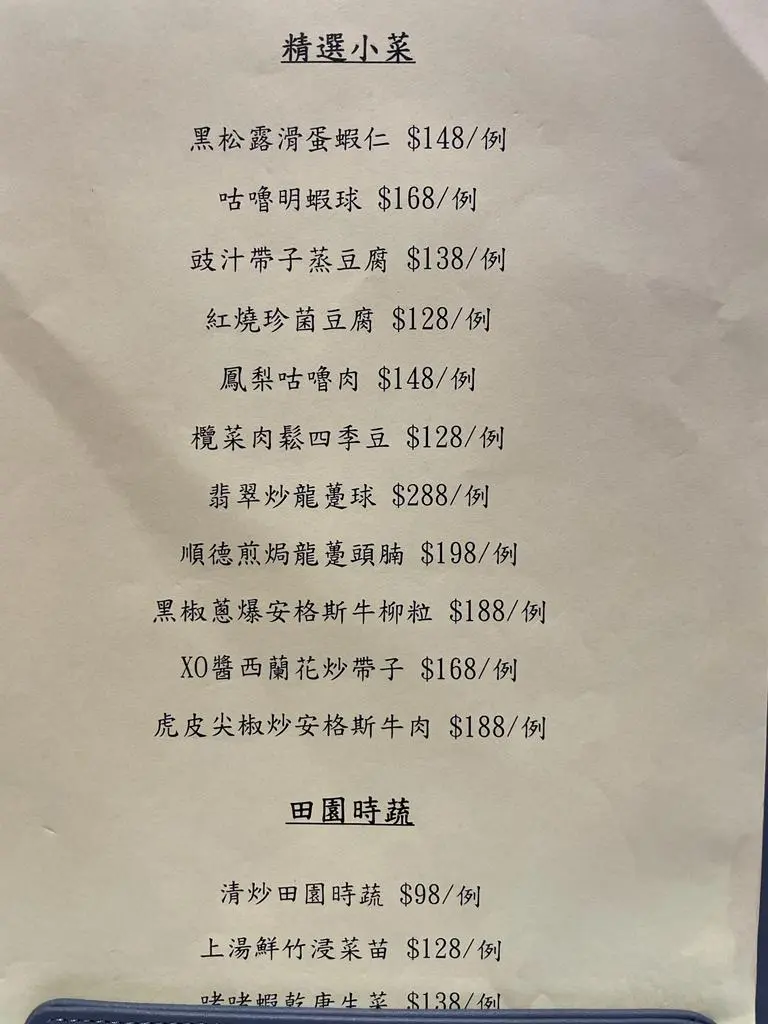 精選小菜
黑松露滑蛋蝦仁 $148/例
咕嚕明蝦球 $168/例
豉汁帶子蒸豆腐 $138/例
紅燒珍菌豆腐 $128/例
鳳梨咕嚕肉 $148/例
欖菜肉鬆四季豆 $128/例
翡翠炒龍躉球 $288/例
順德煎焗龍躉頭腩 $198/例
黑椒蔥爆安格斯牛柳粒 $188/例
XO醬西蘭花炒帶子 $168/例
虎皮尖椒炒安格斯牛肉 $188/例
田園時蔬
清炒田園時蔬 $98/例
上湯鮮竹浸菜苗 $128/例
啫啫蝦乾唐生菜 $138/例